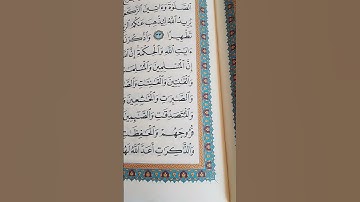 ٱلصَّلَوٰةَ وَءَاتِينَ ٱلزَّكَ
يُرِيدُ ٱللَّهُ لِيُذْهِبَ عَنكُمُ ٱلر
تَطْهِيرًا ٣٣ وَٱذْكُرْنَ
ءَايَٰتِ ٱللَّهِ وَٱلْحِكْمَةِ إِنَّ
إِنَّ ٱلْمُسْلِمِينَ وَٱلْمُسْلِمَ
وَٱلْقَٰنِتِينَ وَٱلْقَٰنِتَٰتِ وَٱلصَّ
وَٱلصَّٰبِرَٰتِ وَٱلْخَٰشِعِينَ
وَٱلْمُتَصَدِّقَٰتِ وَٱلصَّٰٓئِمِينَ
فُرُوجَهُمْ وَٱلْحَٰفِظَٰتِ
وَٱلذَّٰكِرَٰتِ أَعَدَّ ٱللَّهُ لَهُ